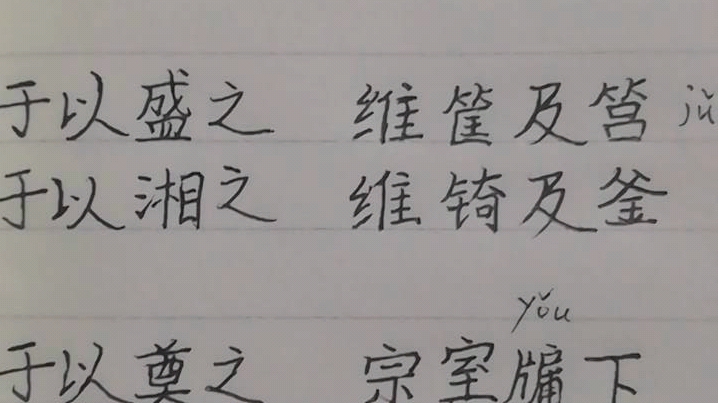 于以盛之 维筐及筥 jǔ
于以湘之 维锜及釜
yǒu
于以奠之 宗室牖下